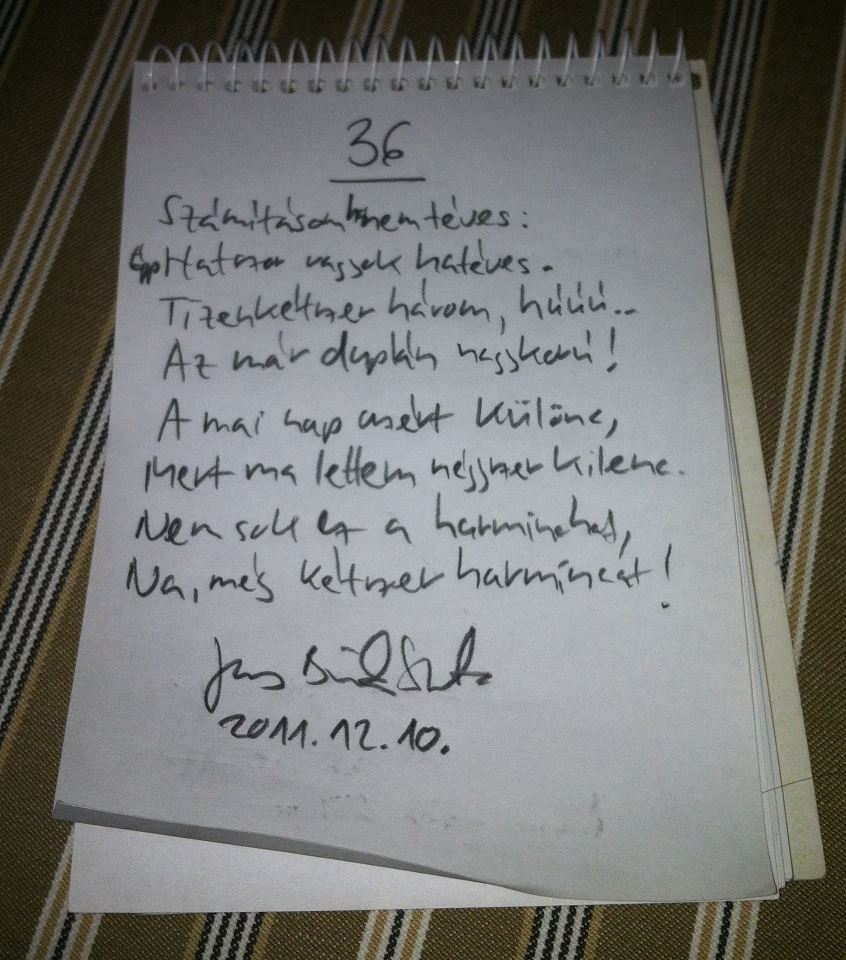 36
Számításom ha nem téves:
épp Hatszor vagyok hatéves.
Tizenkétszer három, húúú..
Az már duplán nagykorú!
A mai nap azért különc,
Mert ma lettem négyszer kilenc.
Nem sok ez a harminchat,
Na, még kétszer harmincat!
2011.12.10.